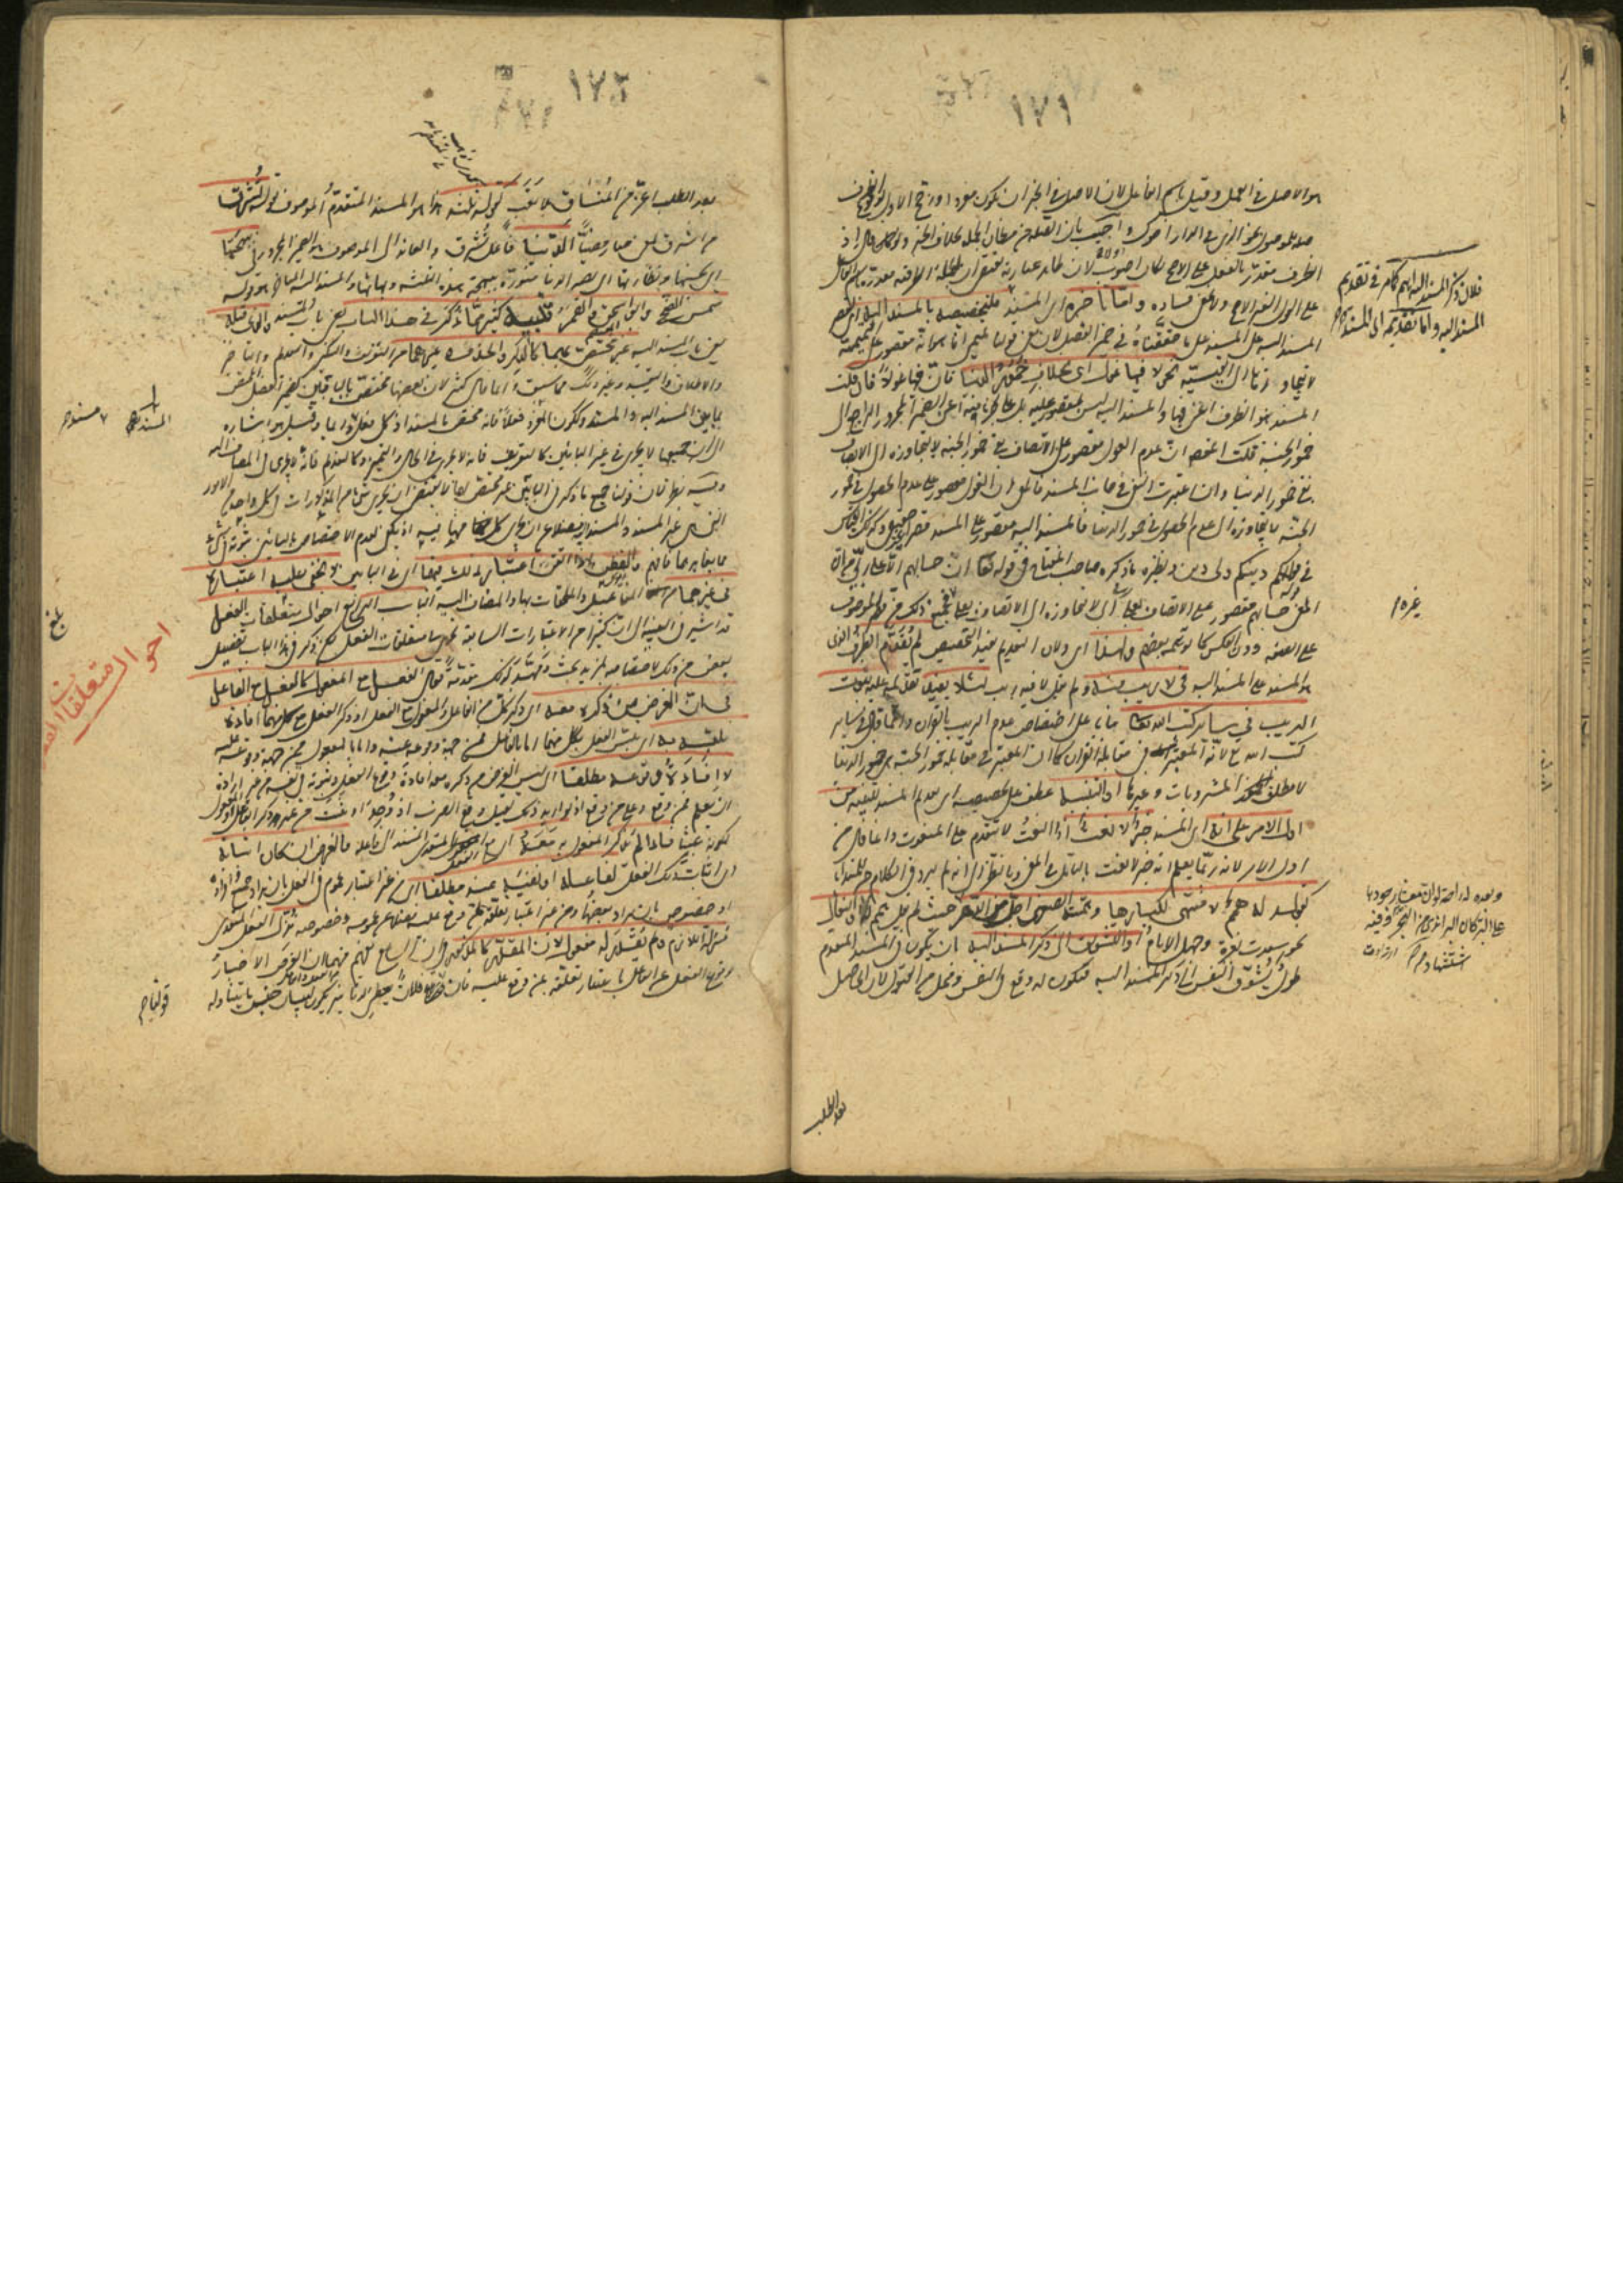 ١٧١
هو الاصل في العمل وقيل باسم الفاعل لان الاصل في الخبر ان يكون مفردا ورجح الاول بوقوع الظرف
صلة للموصول نحو الذي في الدار اخوك واجيب بان الصلة من مظان الجملة بخلاف الخبر ولو قال اذ
الظرف مقدر بالفعل على الاصح لكان اصوب لان ظاهر عبارته يقتضي ان الجملة الظرفية مقدرة باسم الفاعل
على القول الغير الاصح ولا يخفى فساده واما تاخيره اي المسند فلتخصيصه بالمسند اليه اي لقصر
المسند اليه على المسند على ما حققناه في ضمير الفصل لان معنى قولنا تميمي انا هو انه مقصور على التميمية
لا يتجاوزها الى القيسية نحو لا فيها غول اي بخلاف خمور الدنيا فان فيها غولا فان قلت
المسند هو الظرف اعني فيها والمسند اليه ليس بمقصور عليه بل على جزء منه اعني الضمير المجرور الراجع الى
خمور الجنة قلت المقصود ان عدم الغول مقصور على الاتصاف بفي خمور الجنة لا يتجاوزه الى الاتصاف
بفي خمور الدنيا وان اعتبرت النفي في جانب المسند فالمعنى ان الغول مقصور على عدم الحصول في خمور
الجنة لا يتجاوزه الى عدم الحصول في خمور الدنيا فالمسند اليه مقصور على المسند قصرا غير حقيقي وكذلك القياس
في لكم دينكم ولي دين ونظيره ما ذكره صاحب المفتاح في قوله تعالى ان حسابهم الا على ربي من ان
المعنى حسابهم مقصور على الاتصاف بعلى ربي لا يتجاوزه الى الاتصاف بعلى فجميع ذلك من قصر الموصوف
على الصفة دون العكس كما توهمه بعضهم ولهذا اي ولان التقديم يفيد التخصيص لم يقدم الظرف الذي
هو المسند على المسند اليه في لا ريب فيه ولم يقل لا فيه ريب لئلا يفيد تقديمه عليه ثبوت
الريب في سائر كتب الله تعالى بناء على اختصاص عدم الريب بالقران وانما قال في سائر
كتب الله تعالى لانه المعتبر في مقابلة القران كما ان المعتبر في مقابلة خمور الجنة هي خمور الدنيا
لا مطلق المشروبات وغيرها او التنبيه عطف على تخصيصه اي تقديم المسند للتنبيه من
اول الامر على انه اي المسند خبر لا نعت اذ النعت لا يتقدم على المنعوت وانما قال من
اول الامر لانه ربما يعلم انه خبر لا نعت بالتأمل في المعنى وبالنظر الى انه لم يرد في الكلام خبر للمبتدا
كقوله له همم لا منتهى لكبارها وهمته الصغرى اجل من الدهر حيث لم يقل همم له او التفاؤل
نحو سعدت بغرة وجهك الايام او التشويق الى ذكر المسند اليه بان يكون في المسند المتقدم
طول يشوق النفس الى ذكر المسند اليه فيكون له وقع في النفس ومحل من القبول لان الحاصل
بعد الطلب
فلان ذكر المسند اليه اهم كما مر في تقديم
المسند اليه واما تقديمه اي المسند
١٧٢
بعد الطلب اعز من المنساق بلا تعب كقوله ثلثة هذا هو المسند المتقدم الموصوف بقوله تشرق
من اشرق بمعنى صار مضيئا الدنيا فاعل تشرق والعائد الى الموصوف هو الضمير المجرور في ببهجتها
اي بحسنها ونضارتها اي تصير الدنيا منورة ببهجة هذه الثلثة وبهائها والمسند اليه المتاخر هو قوله
شمس الضحى وابو اسحق والقمر تنبيه كثير مما ذكر في هذا الباب يعني باب المسند والذي قبله
يعني باب المسند اليه غير مختص بهما كالذكر والحذف وغيرهما من التعريف والتنكير والتقديم والتاخير
والاطلاق والتقييد وغير ذلك مما سبق وانما قال كثير لان بعضها مختص بالبابين كضمير الفصل المختص
بما بين المسند اليه والمسند وككون المفرد فعلا فانه مختص بالمسند اذ كل فعل مسند دائما وقيل هو اشارة
الى ان جميعها لا يجري في غير البابين كالتعريف فانه لا يجري في الحال والتمييز وكالتقديم فانه لا يجري في المضاف اليه
وفيه نظر لان قولنا جميع ما ذكر في البابين غير مختص بهما لا يقتضي ان يجري شيء من المذكورات في كل واحد من الامور
التي هي غير المسند اليه والمسند فضلا عن ان يجري كل منها فيه اذ يكفي لعدم الاختصاص بالبابين ثبوته في شيء
مما يغايرهما فافهم والفطن اذا اتقن اعتبار ذلك فيهما اي في البابين لا يخفى عليه اعتباره
في غيرهما من المفاعيل والملحقات بها والمضاف اليه الباب الرابع احوال متعلقات الفعل
قد اشير في التنبيه الى ان كثيرا من الاعتبارات السابقة يجري في متعلقات الفعل لكن ذكر في هذا الباب تفصيل
بعض من ذلك لاختصاصه بمزيد بحث ومهد لذلك مقدمة فقال الفعل مع المفعول كالفعل مع الفاعل
في ان الغرض من ذكره معه اي ذكر كل من الفاعل والمفعول مع الفعل او ذكر الفعل مع كل منهما افادة
تلبسه به اي تلبس الفعل بكل منهما اما بالفاعل فمن جهة وقوعه منه واما بالمفعول فمن جهة وقوعه عليه
لا افادة وقوعه مطلقا اي ليس الغرض من ذكره معه افادة وقوع الفعل وثبوته في نفسه من غير ارادة
ان يعلم ممن وقع وعلى من وقع اذ لو اريد ذلك لقيل وقع الضرب او وجد او ثبت من غير ذكر الفاعل او المفعول
لكونه عبثا فاذا لم يذكر المفعول به معه اي مع الفعل المتعدي المسند الى فاعله فالغرض ان كان اثباته
اي اثبات ذلك الفعل لفاعله او نفيه عنه مطلقا اي من غير اعتبار عموم في الفعل بان يراد جميع افراده
او خصوص بان يراد بعضها ومن غير اعتبار تعلقه بمن وقع عليه فضلا عن عمومه وخصوصه نزل الفعل المتعدي
منزلة اللازم ولم يقدر له مفعول لان المقدر كالمذكور في ان السامع يفهم منهما ان الغرض الاخبار
بوقوع الفعل عن الفاعل باعتبار تعلقه بمن وقع عليه فان قولنا فلان يعطي الدنانير يكون لبيان جنس ما يتناوله
احوال متعلقات الفعل
المسند
بلغ